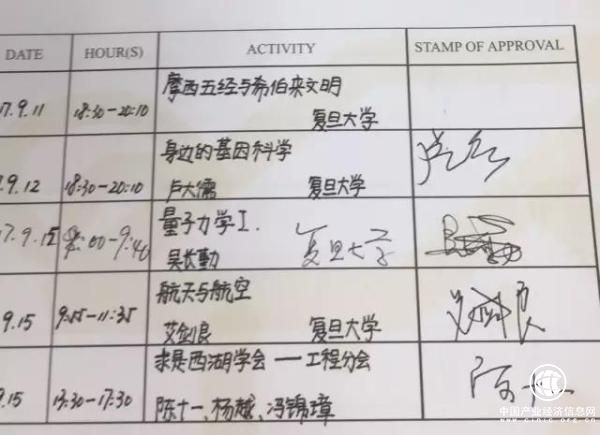 DATE HOUR(S) ACTIVITY STAMP OF APPROVAL
摩西五经与希伯来文明
17.9.11 18:30-20:10 复旦大学
身边的基因科学
9.12 18:30-20:10 卢大儒 复旦大学
量子力学I.
17.9.15 8:00-9:40 吴长勤 复旦大学
航天与航空
9.15 9:55-11:35 艾剑良 复旦大学
求是西湖学会 — 工程分会
9.15 13:30-17:30 陈十一、杨越、冯锦璋
中国产业经济信息网